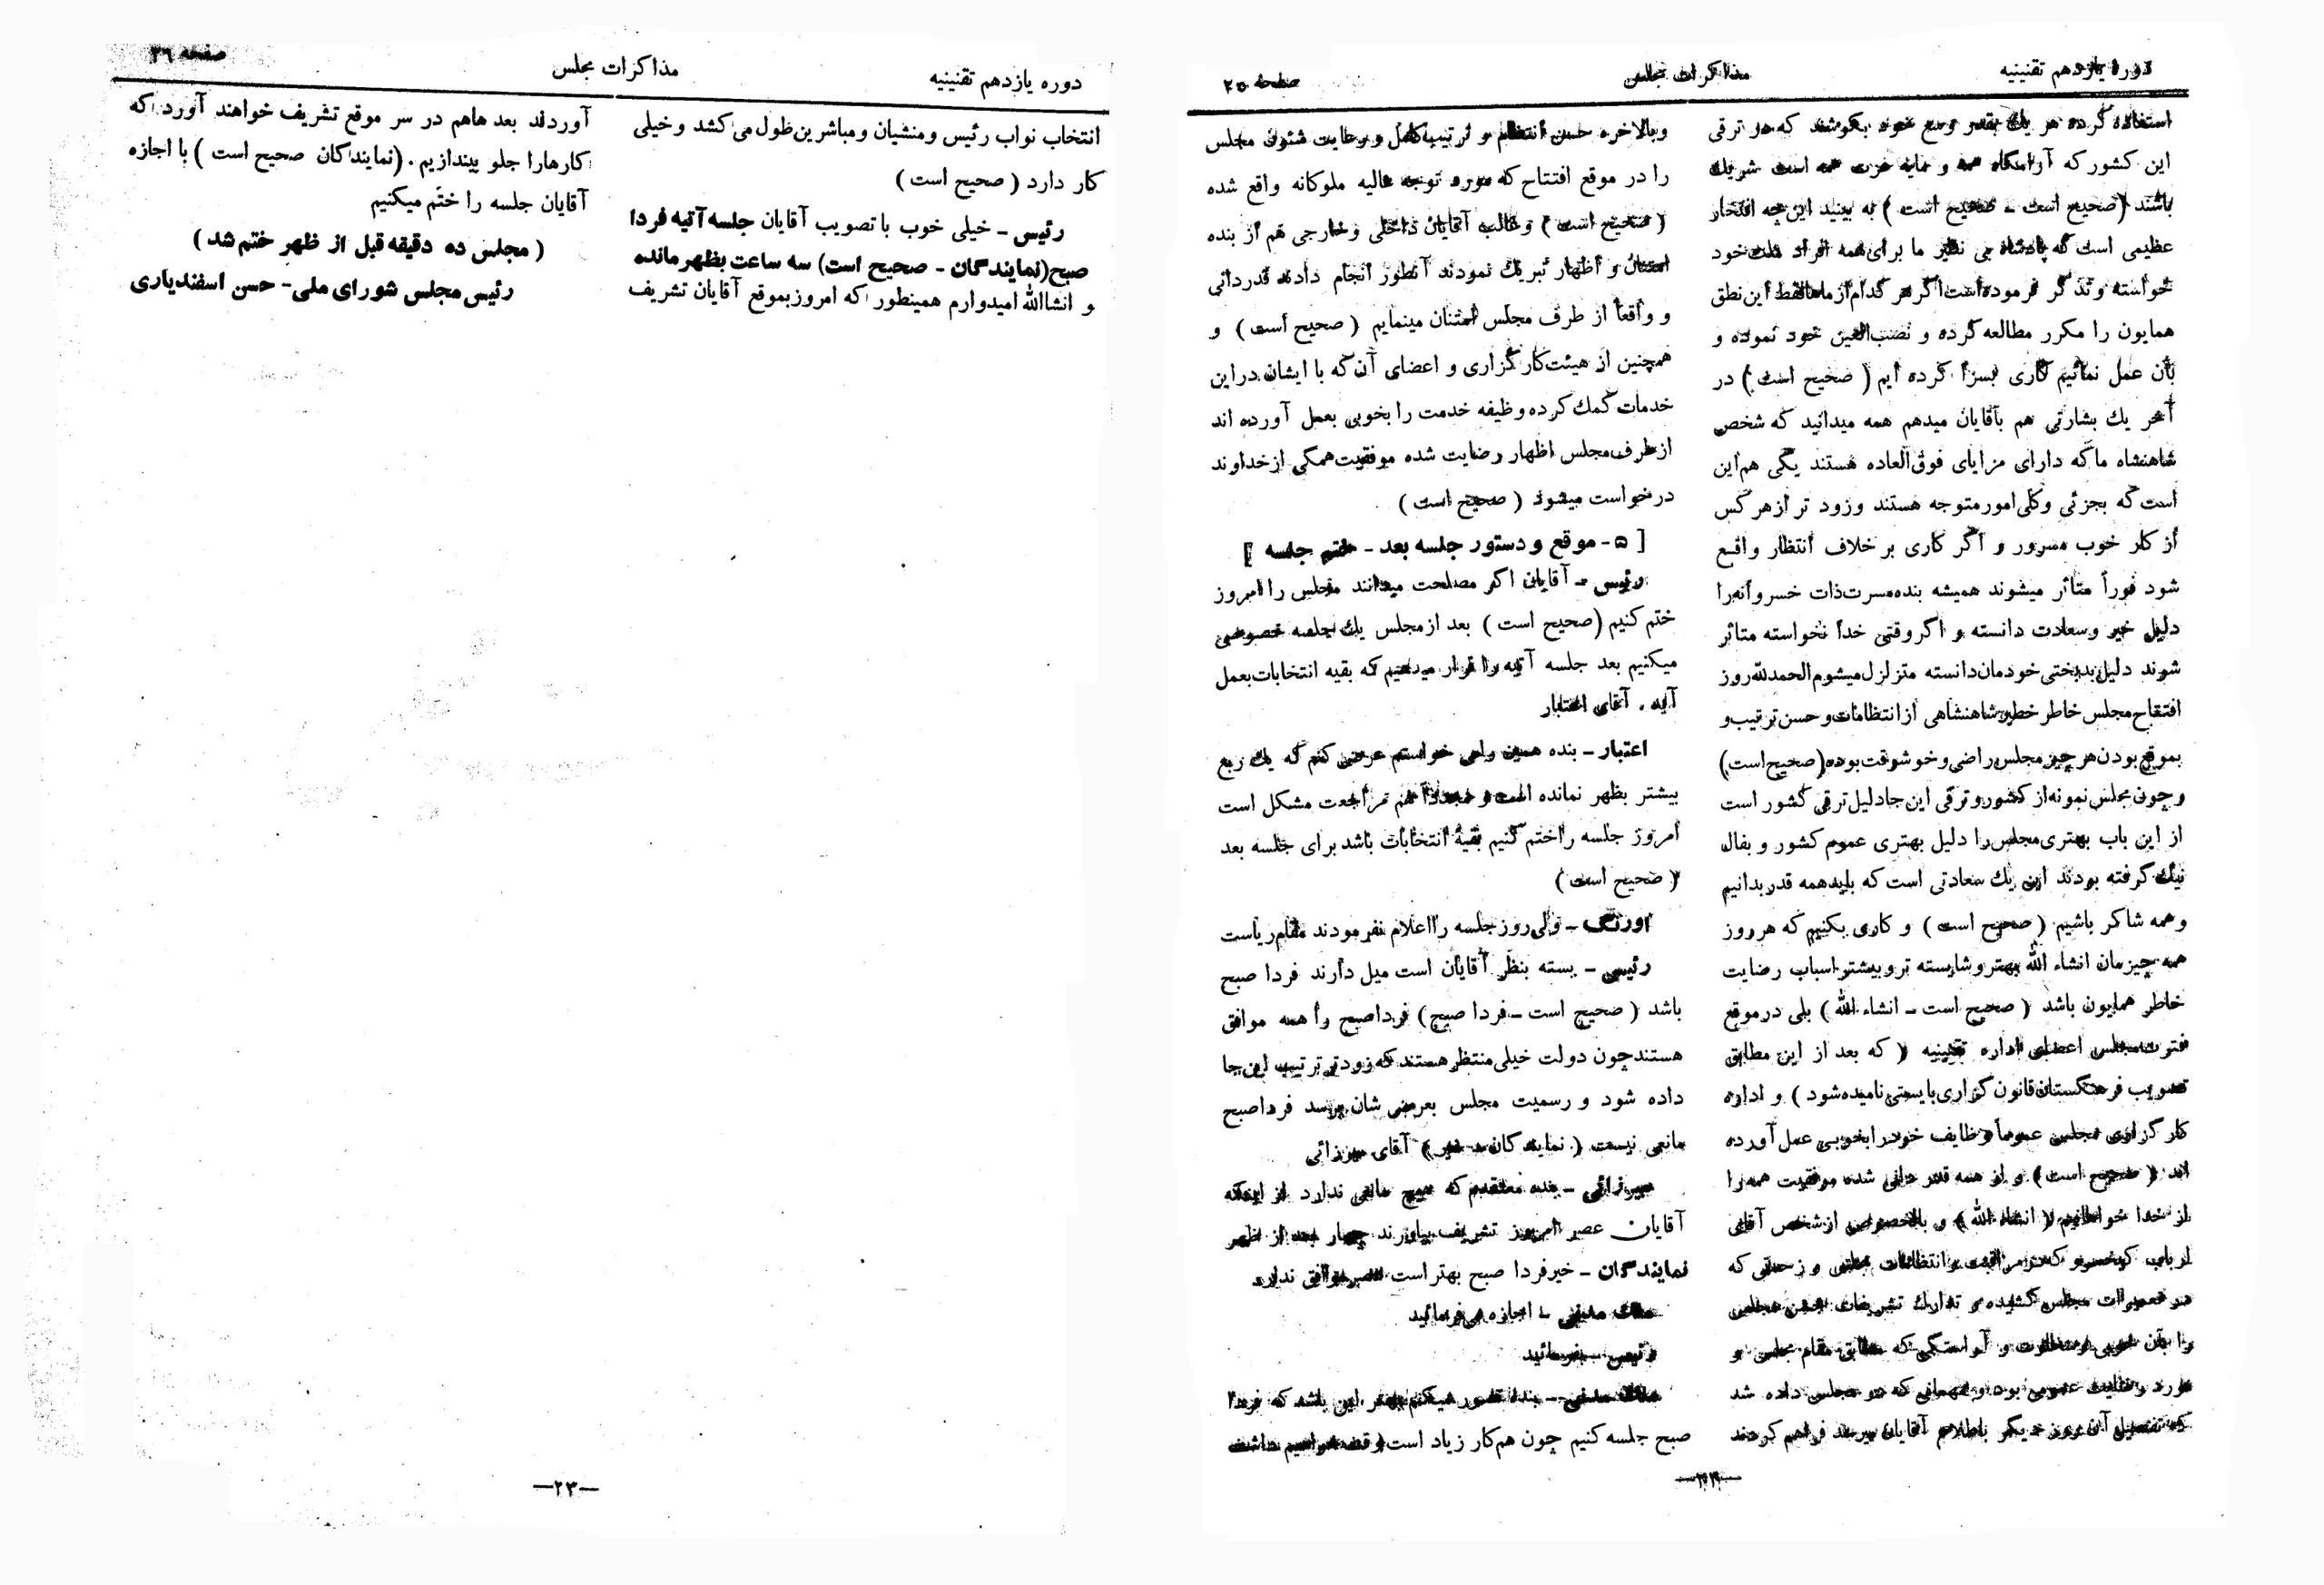 دوره یازدهم تقنینیه
مذاکرات مجلس
صفحه ۲۵
استفاده کرده هر یك بقدر وسع خود بکوشند که در ترقی
این کشور که آرامگاه همه و مایه عزت همه است شریك
باشند (صحیح است ـ صحیح است) به بینید این چه افتخار
عظیمی است که پادشاه بی نظیر ما برای همه افراد ملت خود
خواسته و تذکر فرموده است اگر هر کدام از ماها فقط این نطق
همایون را مکرر مطالعه کرده و نصب العین خود نموده و
بآن عمل نمائیم کاری بسزا کرده ایم (صحیح است) در
آخر یك بشارتی هم بآقایان میدهم همه میدانید که شخص
شاهنشاه ما که دارای مزایای فوق العاده هستند یکی هم این
است که بجزئی و کلی امور متوجه هستند و زود تر از هر کس
از کار خوب مسرور و اگر کاری بر خلاف انتظار واقع
شود فوراً متأثر میشوند همیشه بنده مسرت ذات خسروانه را
دلیل خیر و سعادت دانسته و اگر وقتی خدا نخواسته متاثر
شوند دلیل بدبختی خودمان دانسته متزلزل میشوم الحمدلله روز
افتتاح مجلس خاطر خطیر شاهنشاهی از انتظامات و حسن ترتیب و
بموقع بودن هر چیز مجلس راضی و خوشوقت بوده (صحیح است)
و چون مجلس نمونه از کشور و ترقی این جا دلیل ترقی کشور است
از این باب بهتری مجلس را دلیل بهتری عموم کشور و بفال
نیك گرفته بودند این یك سعادتی است که باید همه قدر بدانیم
و همه شاکر باشیم (صحیح است) و کاری بکنیم که هر روز
همه چیزمان انشاء الله بهتر و شایسته تر و بیشتر اسباب رضایت
خاطر همایون باشد (صحیح است ـ انشاء الله) بلی در موقع
فترت مجلس اعضای اداره تقنینیه (که بعد از این مطابق
تصویب فرهنگستان قانون گزاری بایستی نامیده شود) و اداره
کارگزاری مجلس عموماً وظایف خود را بخوبی عمل آورده
اند (صحیح است) و از همه قدر دانی شده موفقیت همه را
از خدا خواهانیم (انشاء الله) و بالخصوص از شخص آقای
ارباب کیخسرو که در مراقبت و انتظامات مجلس و زحمتی که
در تعمیرات مجلس کشیده و تدارك تشریفات جشن مجلس
را بآن خوبی و آراستگی که مطابق مقام مجلس و
مورد رضایت عمومی بود و مهمانی که در مجلس داده شد
که تفصیل آن روز دیگر باطلاع آقایان میرسد فراهم کردند
و بالاخره حسن انتظام و ترتیب کامل و رعایت شئون مجلس
را در موقع افتتاح که مورد توجه عالیه ملوکانه واقع شده
(صحیح است) و غالب آقایان داخلی و خارجی هم از بنده
امتنان و اظهار تبریك نمودند آنطور انجام دادند قدردانی
و واقعاً از طرف مجلس امتنان مینمایم (صحیح است) و
همچنین از هیئت کارگزاری و اعضای آن که با ایشان در این
خدمات کمك کرده وظیفه خدمت را بخوبی بعمل آورده اند
از طرف مجلس اظهار رضایت شده موفقیت همگی از خداوند
درخواست میشود (صحیح است)
[۵ - موقع و دستور جلسه بعد - ختم جلسه]
رئیس - آقایان اگر مصلحت میدانند مجلس را امروز
ختم کنیم (صحیح است) بعد از مجلس یك جلسه خصوصی
میکنیم بعد جلسه آتیه را قرار میدهیم که بقیه انتخابات بعمل
آید. آقای اعتبار
اعتبار - بنده همین را می خواستم عرض کنم که یك ربع
بیشتر بظهر نمانده است و مجدداً هم مراجعت مشکل است
امروز جلسه را ختم کنیم بقیهٔ انتخابات باشد برای جلسه بعد
(صحیح است)
اورنگ - ولی روز جلسه را اعلام نفرمودند مقام ریاست
رئیس - بسته بنظر آقایان است میل دارند فردا صبح
باشد (صحیح است - فردا صبح) فردا صبح را همه موافق
هستند چون دولت خیلی منتظر هستند که زودتر ترتیب این جا
داده شود و رسمیت مجلس بعرض شان برسد فردا صبح
مانعی نیست (نمایندگان - خیر) آقای میرزائی
میرزائی - بنده معتقدم که هیچ مانعی ندارد از اینکه
آقایان عصر امروز تشریف بیاورند چهار بعد از ظهر
نمایندگان - خیر فردا صبح بهتر است عصر موافق ندارد
ملك مدنی - اجازه می فرمائید
رئیس - بفرمائید
ملك مدنی - بنده تصور میکنم بهتر این باشد که فردا
صبح جلسه کنیم چون هم کار زیاد است
—۲۲—
دوره یازدهم تقنینیه
مذاکرات مجلس
صفحه ۲۶
انتخاب نواب رئیس و منشیان و مباشرین طول می کشد و خیلی
کار دارد (صحیح است)
رئیس - خیلی خوب با تصویب آقایان جلسه آتیه فردا
صبح (نمایندگان - صحیح است) سه ساعت بظهر مانده
و انشاالله امیدوارم همینطور که امروز بموقع آقایان تشریف
آوردند بعد هاهم در سر موقع تشریف خواهند آورد که
کارهارا جلو بیندازیم. (نمایندگان صحیح است) با اجازه
آقایان جلسه را ختم میکنیم
(مجلس ده دقیقه قبل از ظهر ختم شد)
رئیس مجلس شورای ملی - حسن اسفندیاری
—۲۳—